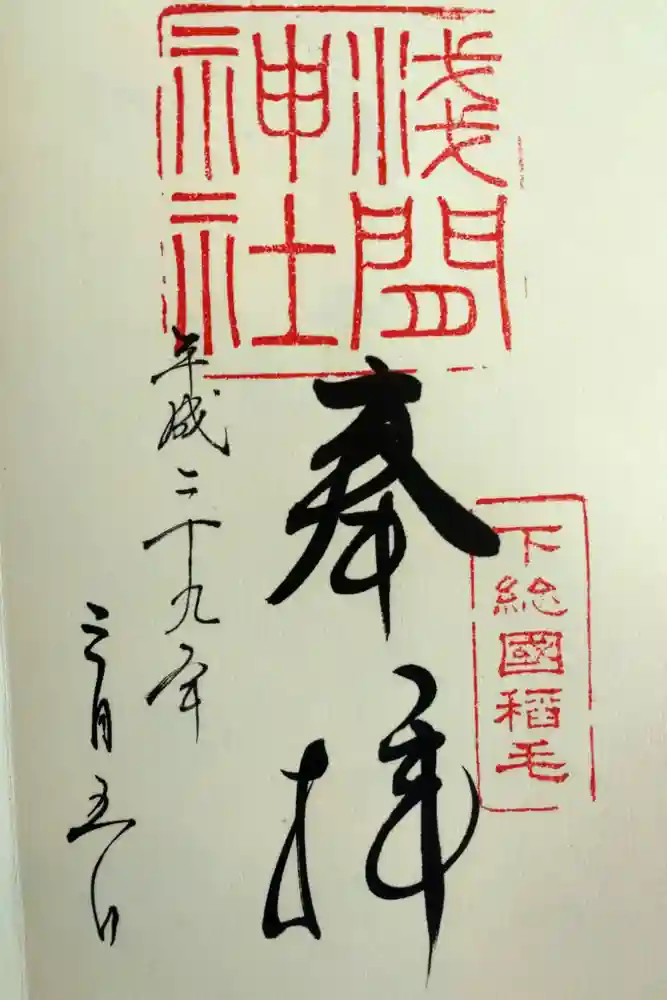 淺間
神社
下総國稻毛
奉拝
平成二十九年
三月五日